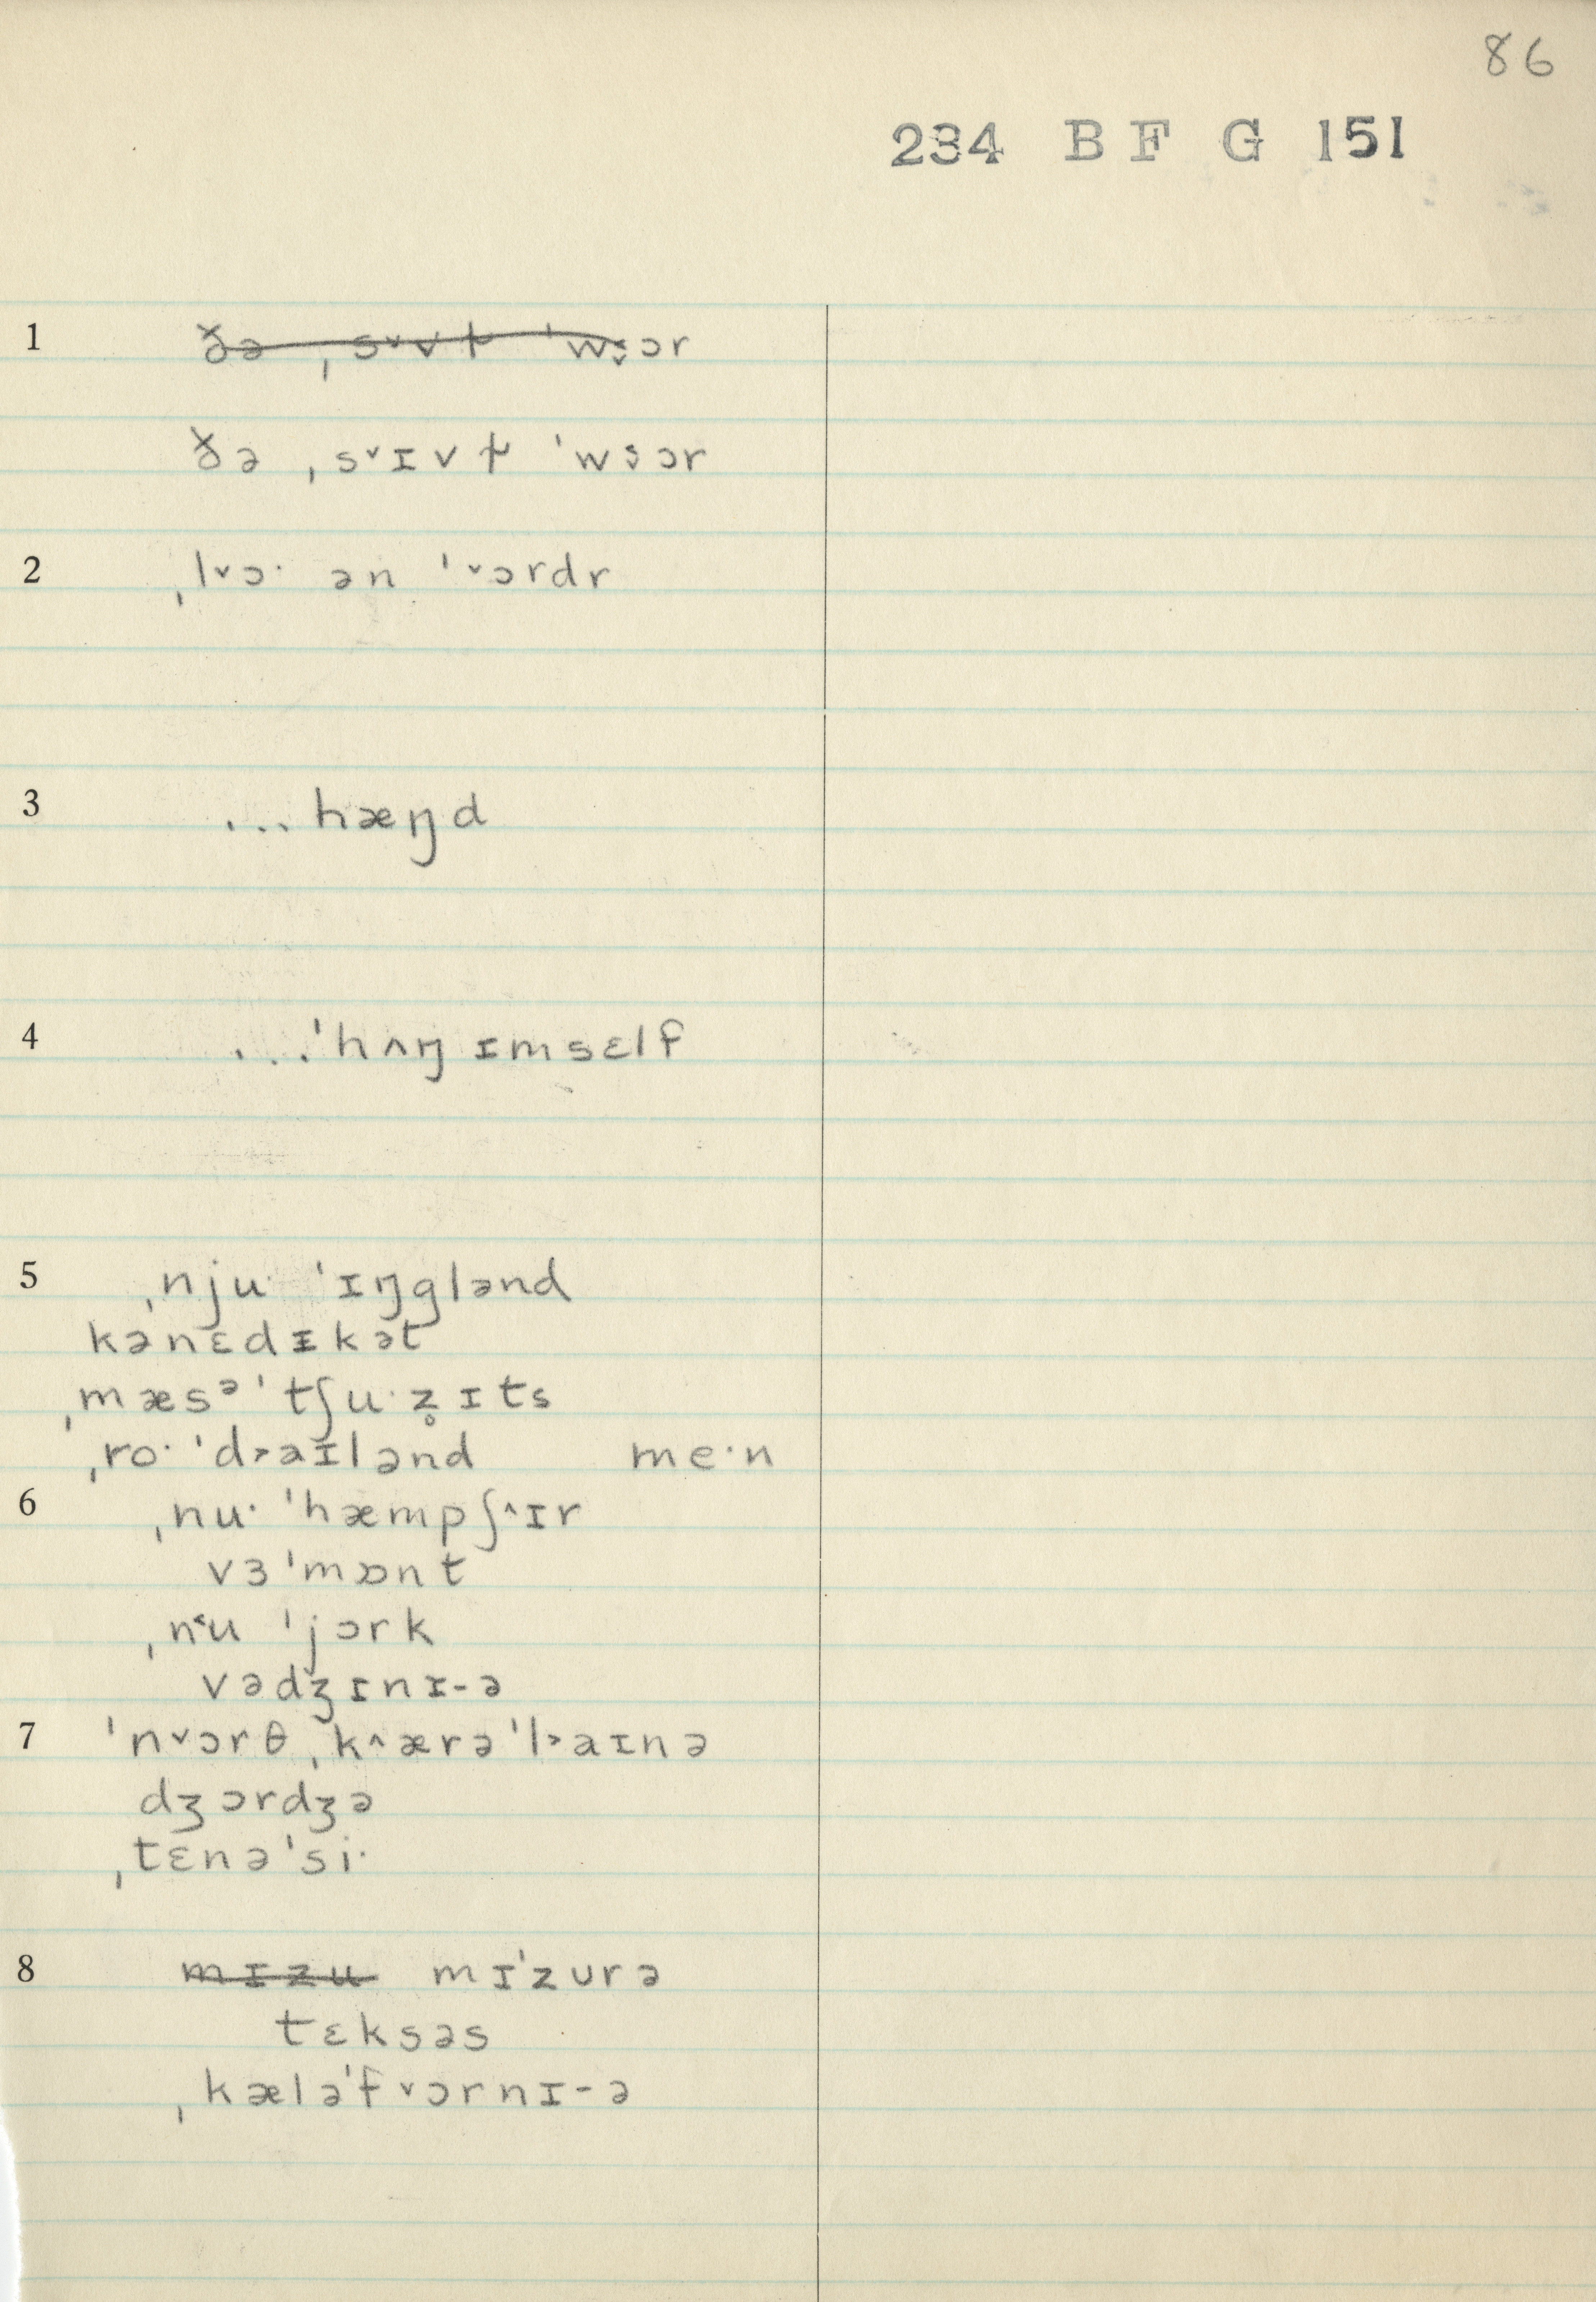 86
234 B F G 151
1 ðə ˌsᵛvɫ ˈwɔr
ðə ˌsᵛɪvɫ ˈwɔr
2 ˌlᵛɔ· ən ˈᵛɔrdr
3 ...hæŋd
4 ...ˈhʌŋ ɪmsɛlf
5 ˌnju· ˈɪŋglənd
kənɛdɪkət
ˌmæsᵊˈtʃu·z̥ɪts
ˌro·ˈd˃aɪlənd me·n
6 ˌnu· ˈhæmpʃ^ɪr
vɜˈmɒnt
ˌn˂u ˈjɔrk
vədʒɪnɪ-ə
7 ˈnᵛɔrθ ˌk^ærəˈl˃aɪnə
dʒɔrdʒə
ˌtɛnəˈsi·
8 mɪzu mɪˈzʊrə
tɛksəs
ˌkæləˈfᵛɔrnɪ-ə